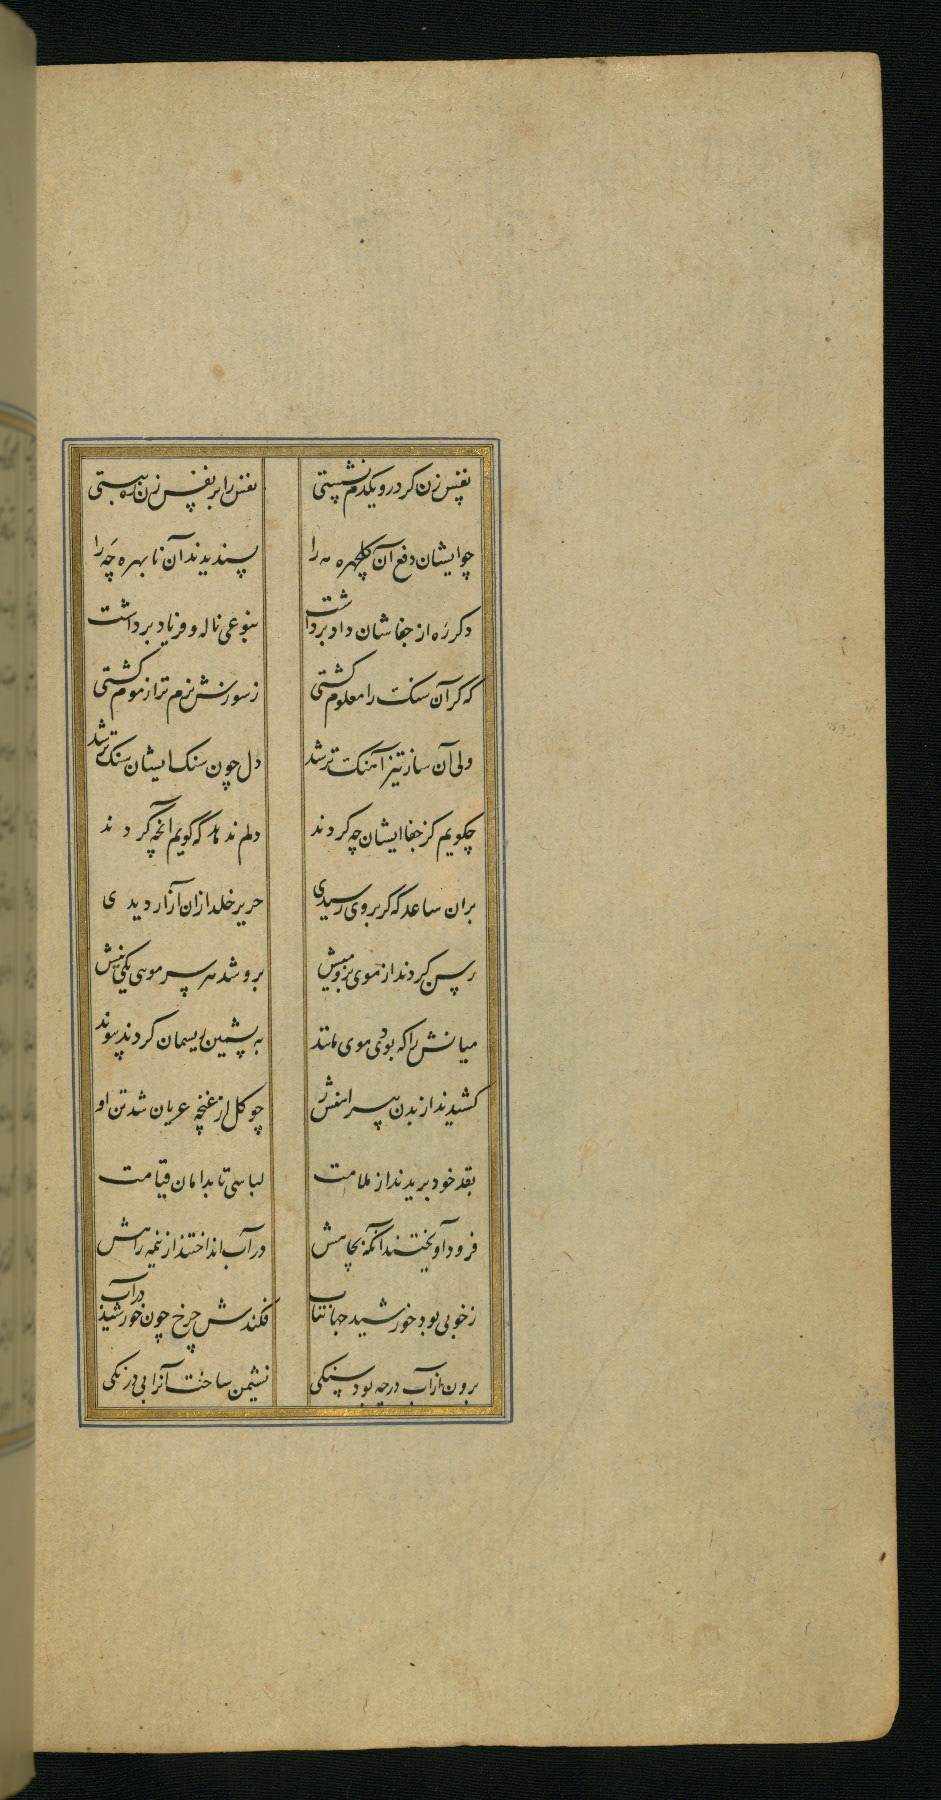 نفس زن کرد رو یکدم نشستی نفس را بر نفس زن ره ببستی
چو ایشان دفع آن گلچهره مه را پسندیدند آن نابهره چَه را
دکر ره از جفاشان داد برداشت بنوعی ناله و فریاد برداشت
که کر آن سنک را معلوم کشتی ز سوزش نرم تر از موم کشتی
ولی آن ساز تیز آهنک تر شد دل چون سنک ایشان سنک تر شد
چکویم کز جفا ایشان چه کردند دلم ندهد که کویم آنچه کردند
بران ساعد که کر بروی رسیدی حریر خلد ازان آزار دیدی
رسن کردند از موی بز و میش برو شد هر سر موی یکی نیش
میانش را که بودی موی مانند به پشمین ریسمان کردند پیوند
کشیدند از بدن پیراهنش ژ چو کل از غنچه عریان شد تن او
بقد خود بریدند از ملامت لباسی تا بدامان قیامت
فرود آویختند آنکه بچاهش در آب انداختند از نیمه راهش
ز خوبی بود خورشید جهانتاب فکندش چرخ چون خورشید در آب
برون از آب در چه بود سنکی نشیمن ساخت آنرا بی درنکی